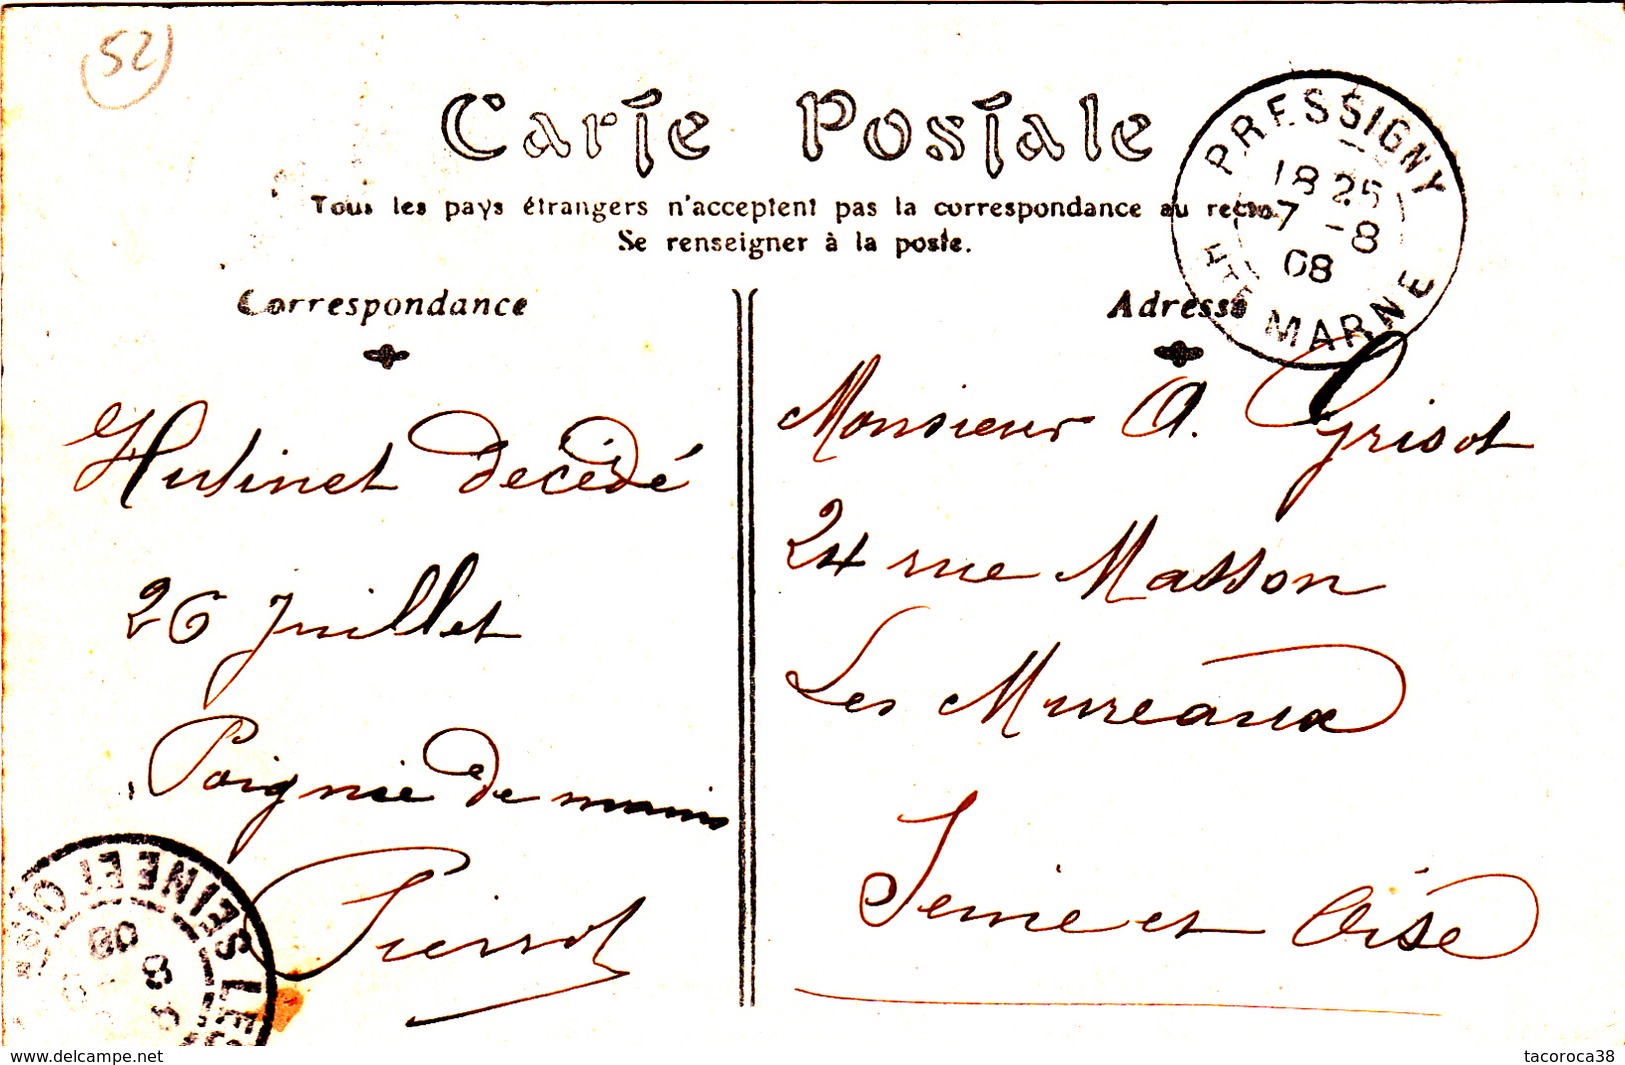 52
Carte Postale
Tous les pays étrangers n'acceptent pas la correspondance au recto.
Se renseigner à la poste.
PRESSIGNY
18 25
7 -8
08
HTE MARNE
Correspondance
Adresse
Hutinet decédé
26 Juillet
Poignée de mains
Pierrot
Monsieur A. Grisot
24 rue Masson
Les Mureaux
Seine et Oise
LES
SEINE ET OISE
8
08
www.delcampe.net
tacoroca38